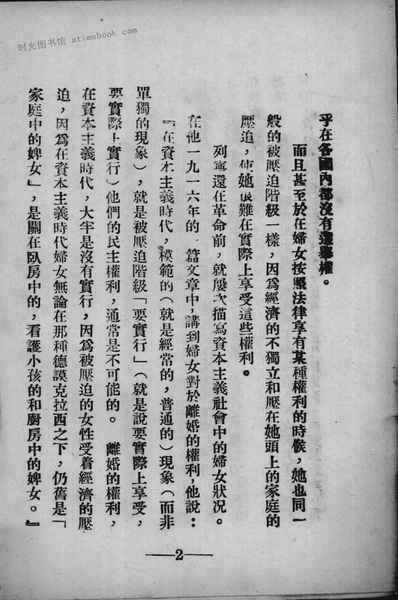 时光图书馆 atimebook.com
乎在各國內都沒有選舉權。
而且甚至於在婦女按照法律享有某種權利的時候，她也同一
般的被壓迫階級一樣，因爲經濟的不獨立和壓在她頭上的家庭的
壓迫，使她很難在實際上享受這些權利。
列寗還在革命前，就屢次描寫資本主義社會中的婦女狀况。
在他一九一六年的一篇文章中，講到婦女對於離婚的權利，他說：
『在資本主義時代，模範的（就是經常的，普通的）現象（而非
單獨的現象），就是被壓迫階級「要實行」（就是說要實際上享受，
要實際上實行）他們的民主權利，通常是不可能的。離婚的權利，
在資本主義時代，大半是沒有實行，因爲被壓迫的女性受着經濟的壓
迫，因爲在資本主義時代婦女無論在那種德謨克拉西之下，仍舊是「
家庭中的婢女」，是關在臥房中的，看護小孩的和廚房中的婢女。』
2